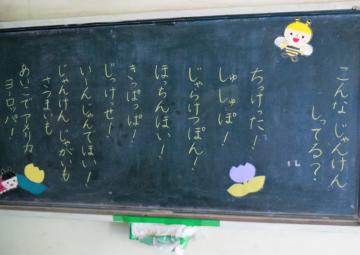 こんな じゃんけん
しってる？
ちっけった！
しゅしゅぽ！
じゃらけつぽん！
ほらんほい！
きっぱっぱ！
じっけっせ！
いーんじゃんでほい！
じゃんけん じゃがいも
さつまいも
あいこでアメリカ
ヨーロッパ！